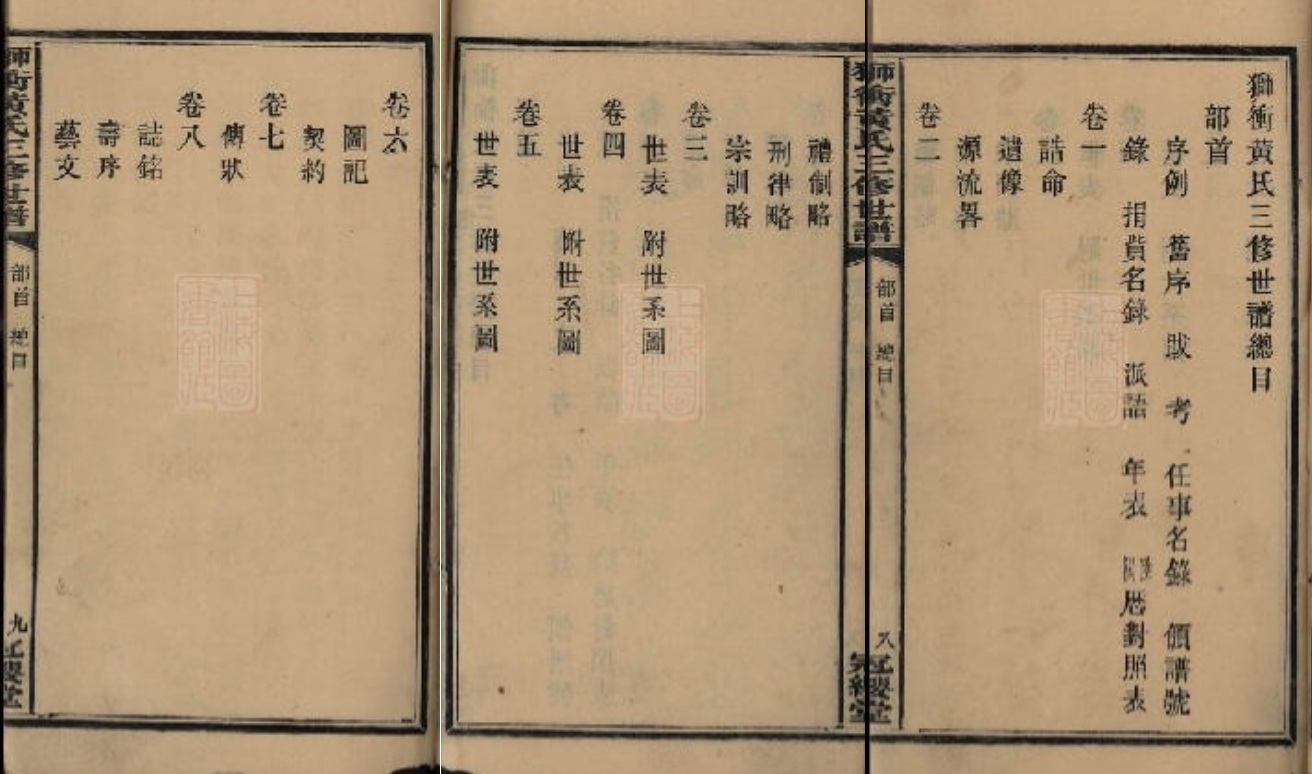 獅衝黃氏三修世譜總目
部首
序例 舊序 跋 考 任事名錄 領譜號
錄 捐貲名錄 派語 年表 曆對照表
卷一
誥命
遺像
源流畧
卷二
獅衝黃氏三修世譜 部首 總目 八 冠纓堂
禮制略
刑律略
宗訓略
卷三
世表 附世系圖
卷四
世表 附世系圖
卷五
世表三 附世系圖
卷六
圖記
契約
卷七
傳狀
卷八
誌銘
壽序
藝文
獅衝黃氏三修世譜 部首 總目 九 冠纓堂